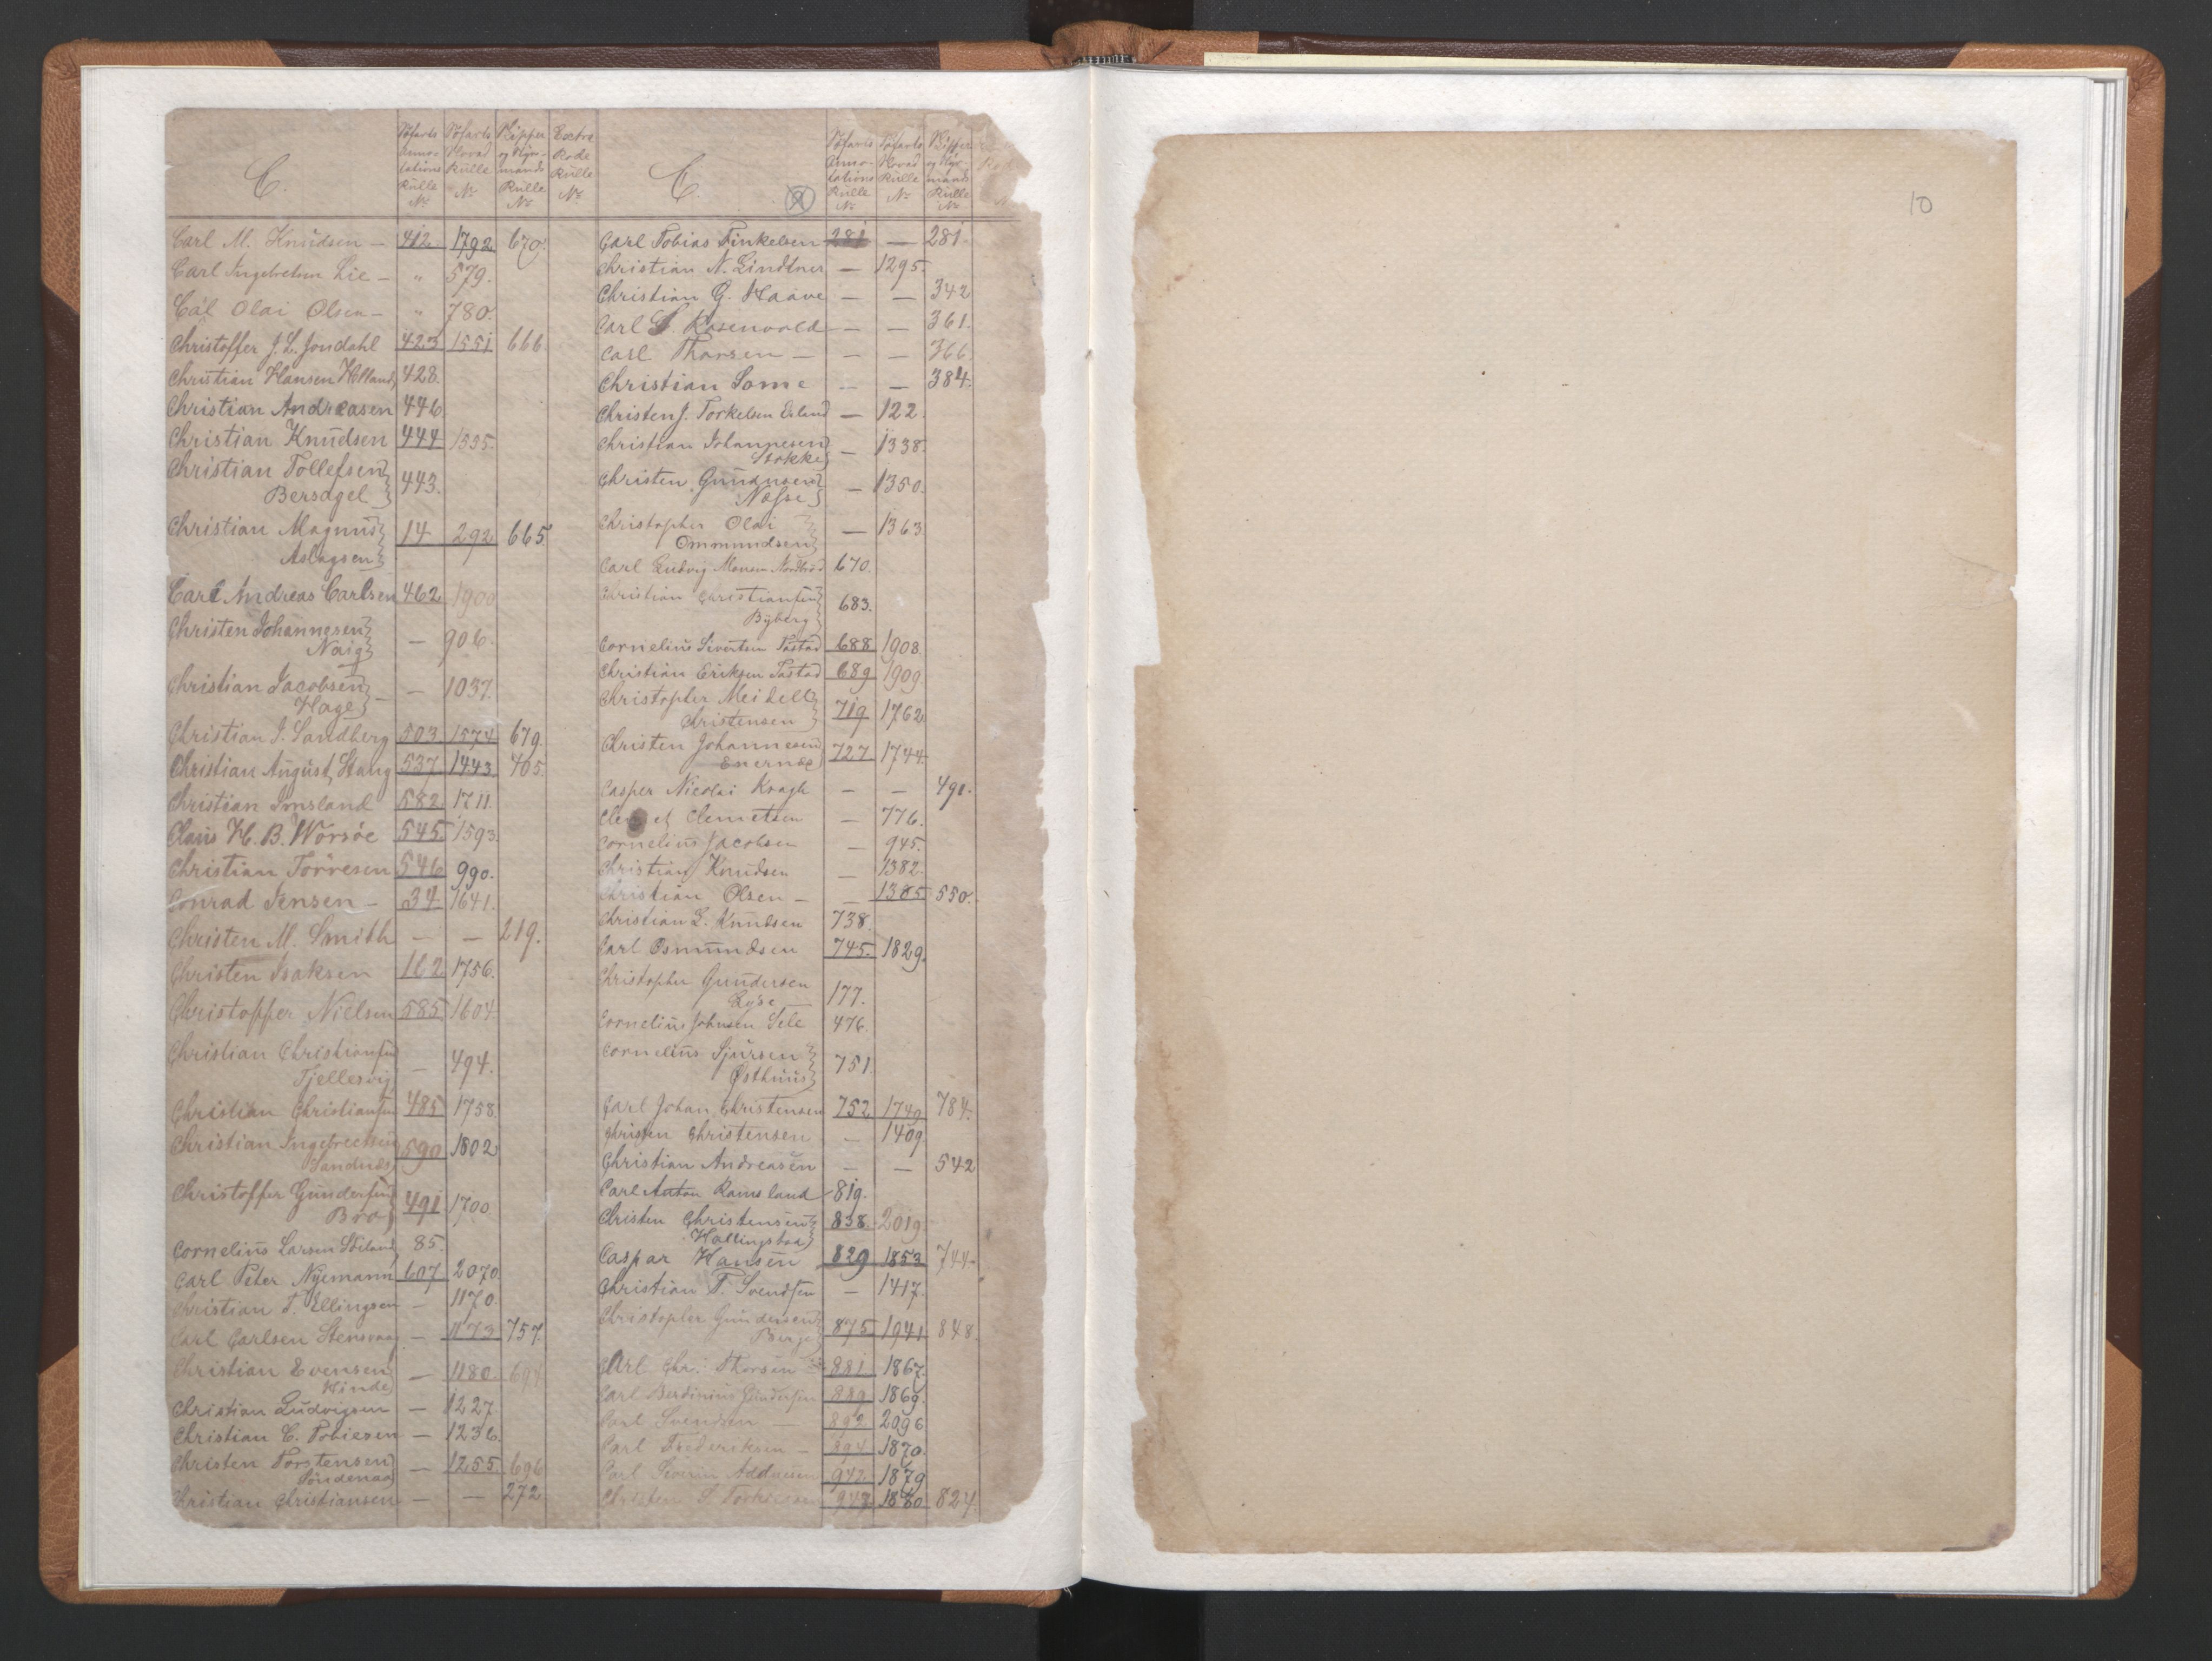 C.
Søfarts Anno- tations Rulle No
Søfarts Hoved Rulle No
Skipper og Styr- mands Rulle No
Extra Rode Rulle No
Carl M. Knudsen - 412 1792 670.
Carl Ingebretsen Lie - " 579.
Carl Olai Olsen - " 780.
Christoffer J. L. Jondahl 423 1551 666.
Christian Hansen Helland 428.
Christian Andreasen 446
Christian Knudsen 444 1335.
Christian Tollefsen
Bersagel 443.
Christian Magnus 14 292 665.
Aslagsen
Carl Andreas Carlsen 462 1900
Christen Johannesen
Naig — 906.
Christian Jacobsen — 1037.
Hage
Christian J. Sandberg 503 1574 679.
Christian August Stang 537 1443. 405.
Christian Imsland 582 1711.
Claus H. B. Worsøe 545 1593
Christian Torresen 546 990.
Conrad Jensen - 34 1641.
Christen M. Smith — — 219.
Christen Isaksen 162 1756.
Christopher Nielsen 585 1604
Christian Christiansen
Tjellesvig — 494.
Christian Christiansen 485 1758.
Christian Ingebretsen 590 1802
Sandnæs
Christoffer Gundersen
Bro 491 1700
Cornelius Larsen 85.
Carl Peter Nyemann 607 2070.
Christian T. Ellingsen — 1170.
Carl Carlsen Stensvaag — 1173 757.
Christian Evensen — 1180. 694
Hinde
Christian Ludvigsen — 1227
Christian C. Tobiesen — 1236.
Christen Torstensen — 1255. 696
Søndenaa
Kristian Christiansen — — 272
C.
9
Søfarts Anno- tations Rulle No
Søfarts Hoved Rulle No
Skipper og Styr- mands Rulle No
Carl Tobias Finkelsen 281 — 281.
Christian N. Lindtner — 1295.
Christian G. Haave — — 342
Carl S. Rosenvold — — 361.
Carl Thorsen — — — 366.
Christian Lome — — 384.
Christen J. Torkelsen Erland — 122.
Christian Johannesen
Stokke — 1338.
Christen Gundersen
Næsse — 1350.
Christopher Olai
Ommundsen — 1363.
Carl Ludvig Monsen 670.
Christian Christiansen
Byberg 683.
Cornelius Sivertsen Tastad 688 1908.
Christian Eriksen Tastad 689 1909.
Christopher Meidell
Christensen 719 1762
Christen Johannesen 727 1744.
Enernæs
Casper Nicolai Kragh — — 491.
Clemet Clemetsen — 776.
Cornelius Jacobsen — 945.
Christian Knudsen — 1382.
Christian Olsen — — 1385 550.
Christian L. Knudsen 738.
Carl Osmundsen 745. 1829.
Christopher Gundersen
Lyse 177.
Cornelius Johnsen Sele 476.
Cornelius Sjursen
Østhuus 751.
Carl Johan Christensen 752 1749 784.
Christen Christensen — 1409
Christian Andreasen — — 542
Carl Anton Ramsland 819.
Christen Christensen 838. 2019
Hallingstad
Caspar Hansen 829 1853 744
Christian T. Svendsen — 1417.
Christopher Gundersen
Berge 875 1941 848.
Carl Chr. Thorsen 881 1867.
Carl Berdinius Gundersen 889 1869.
Carl Svendsen — 892 2096
Carl Frederiksen — 894 1870.
Carl Severin 942 1879
Christen S. 947 1880 824.
10